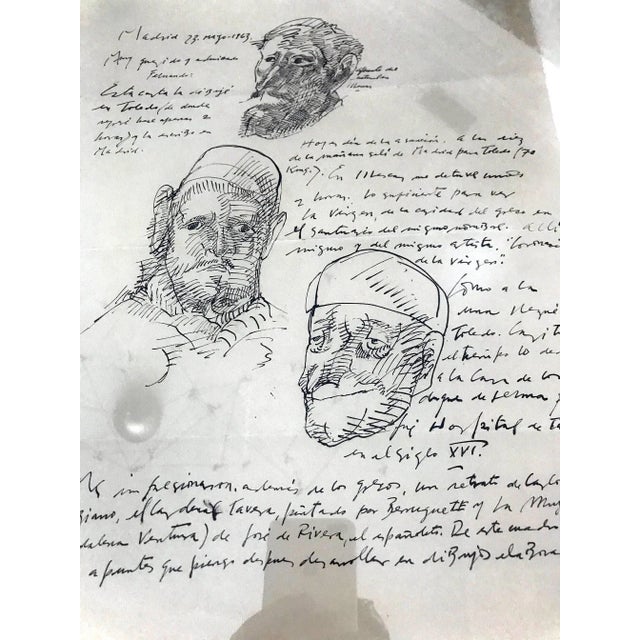 Madrid 23. mayo. 1963
Muy querido y admirado
Fernando:
Esta carta la dibujé
en Toledo, de donde
regresé hace apenas 2
horas) y la escribo en
Madrid.
Hoy es día de la ascensión. A las diez
de la mañana salí de Madrid para Toledo (70
Kmg.). En Illescas me detuve unas
2 horas. Lo suficiente para ver
La Virgen, de la caridad del greco en
el santuario del mismo nombre. Allí
mismo y del mismo artista "Coronación
de la virgen".
Como a la
una llegué
Toledo.
el tiempo lo de
a la Casa de los
duques de Lerma y
fué Hospital de Ta
en el siglo XVI.
Me impresionaron, además de los grecos, un retrato de
el Cardenal Tavera, pintado por Berruguete y La Muj
dalena Ventura) de José de Rivera, el españoleto. De este cuadro
apuntes que pienso después desarrollar en dibujos